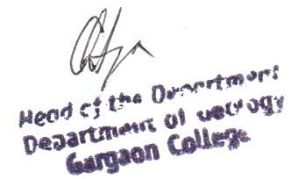 Head of the Department
Department of
Gargaon College